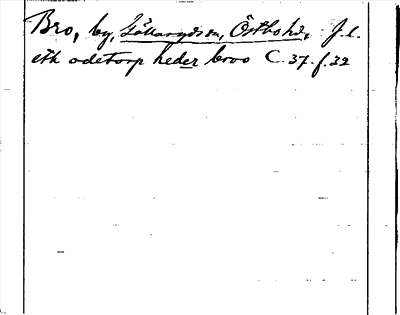 Bro, by, Göllaryds sn, Östbo hd, J. l.
eth ödetorp heder broo C. 37. f. 32